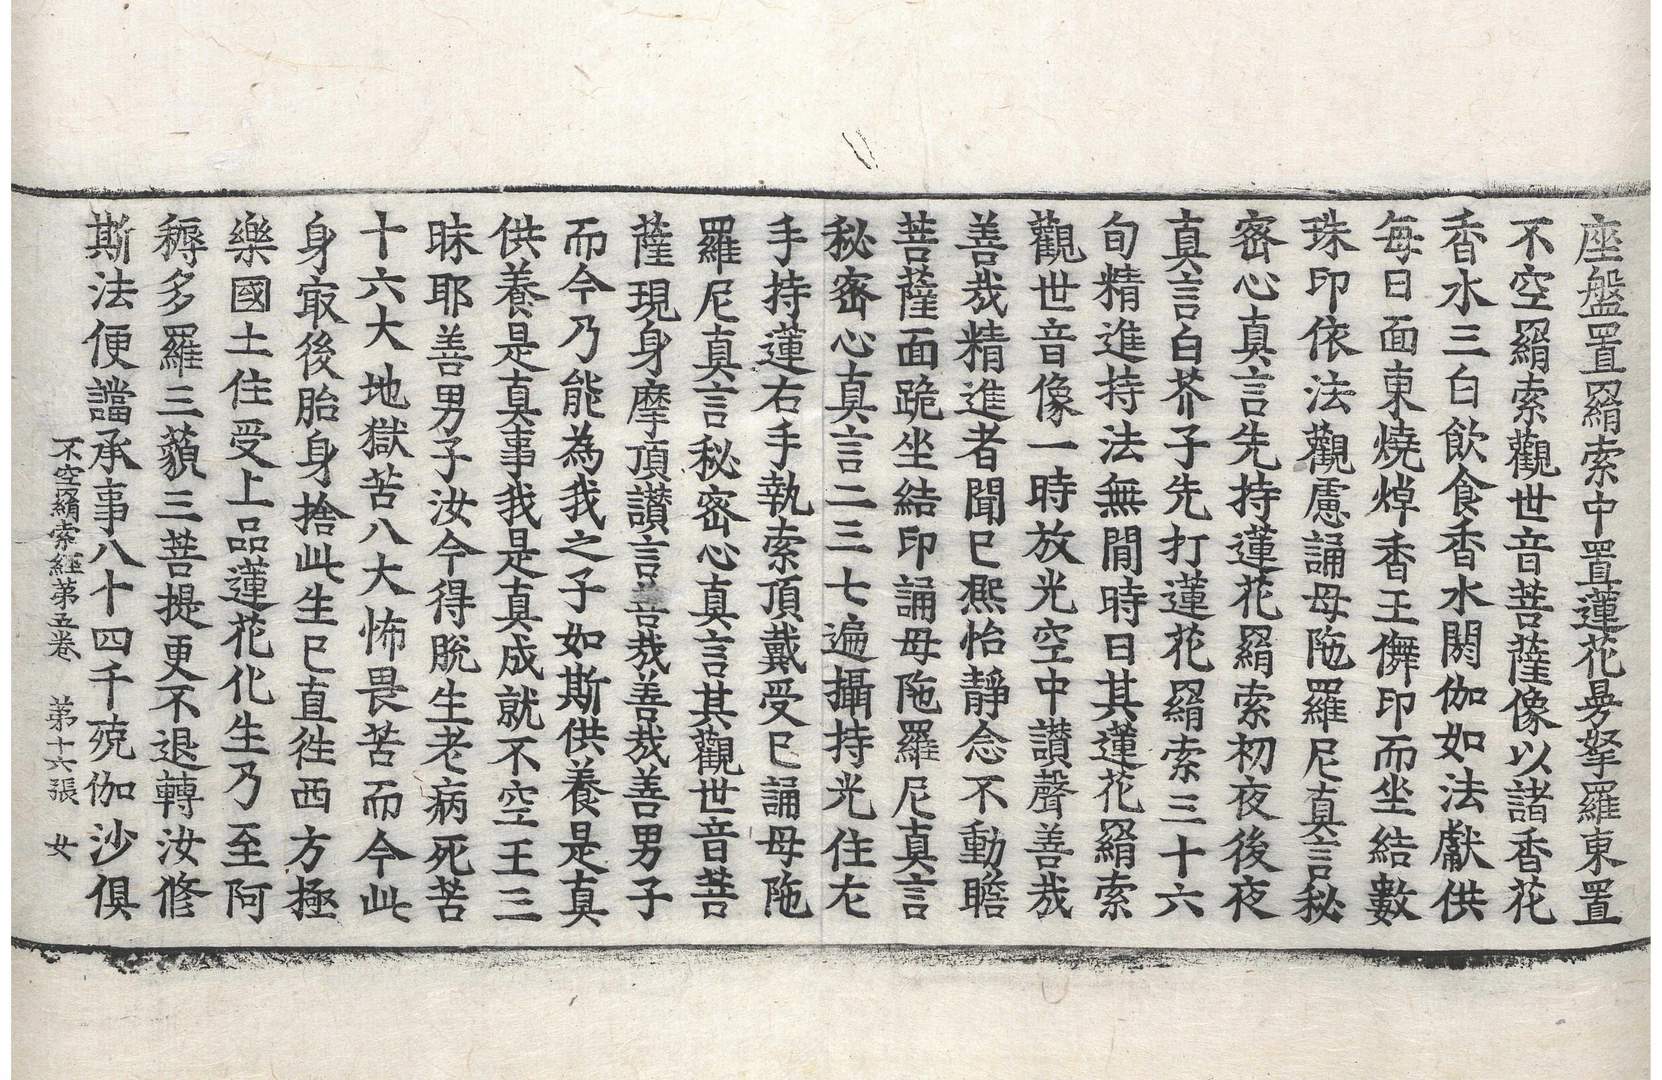 座盤置羂索中置蓮花曼拏羅東置
不空羂索觀世音菩薩像以諸香花
香水三白飲食香水閼伽如法獻供
每日面東燒焯香王儛印而坐結數
珠印依法觀慮誦母陁羅尼真言秘
密心真言先持蓮花羂索初夜後夜
真言白芥子先打蓮花羂索三十六
旬精進持法無間時日其蓮花羂索
觀世音像一時放光空中讃聲善哉
善哉精進者聞已熈怡靜念不動瞻
菩薩面跪坐結印誦母陁羅尼真言
秘密心真言二三七遍攝持光住左
手持蓮右手執索頂戴受已誦母陁
羅尼真言秘密心真言其觀世音菩
薩現身摩頂讃言善哉善哉善男子
而今乃能為我之子如斯供養是真
供養是真事我是真成就不空王三
昧耶善男子汝今得脫生老病死苦
十六大地獄苦八大怖畏苦而今此
身㝡後胎身捨此生已直徃西方極
樂國土住受上品蓮花化生乃至阿
耨多羅三藐三菩提更不退轉汝修
斯法便譡承事八十四千殑伽沙俱
不空羂索經第五卷 第十六張 女